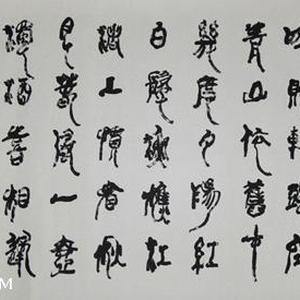 成敗轉頭空
青山依舊在
幾度夕陽紅
白髮漁樵江
渚上慣看秋
月春風一壺
濁酒喜相逢